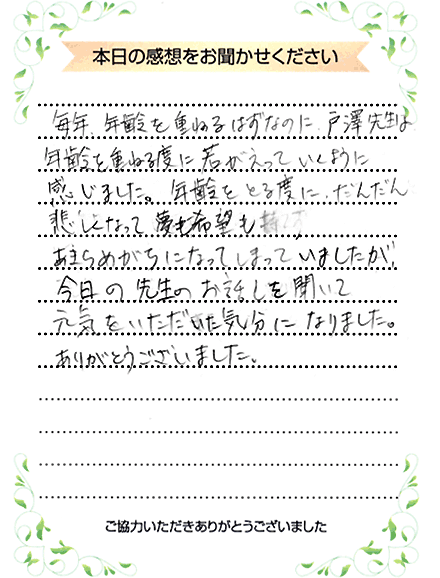 本日の感想をお聞かせください
毎年、年齢を重ねるはずなのに、戸澤先生は
年齢を重ねる度に若がえっていくように
感じました。年齢をとる度に、だんだん
悲しくなって夢も希望も持てず
あきらめがちになってしまっていましたが、
今日の先生のお話しを聞いて
元気をいただいた気分になりました。
ありがとうございました。
ご協力いただきありがとうございました